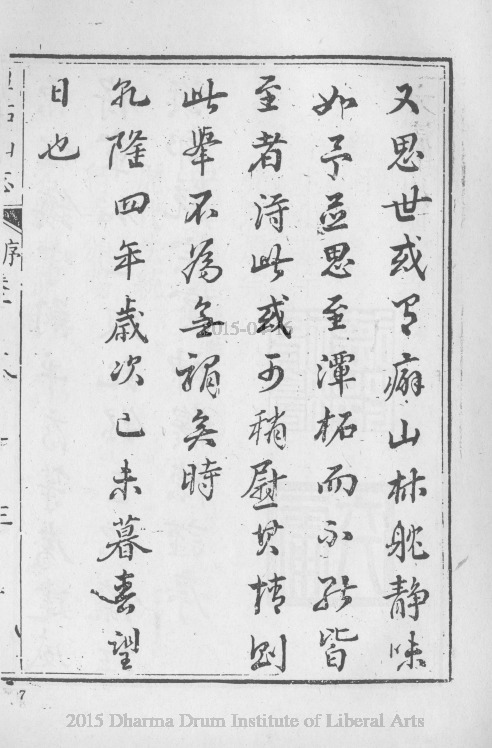 又思世或有癖山林躭静味
如予並思至潭柘而不能皆
至者得此或可稍慰其情則
此舉不為無補矣時
乾隆四年歲次己未暮春望
日也
序
7
2015 Dharma Drum Institute of Liberal Arts